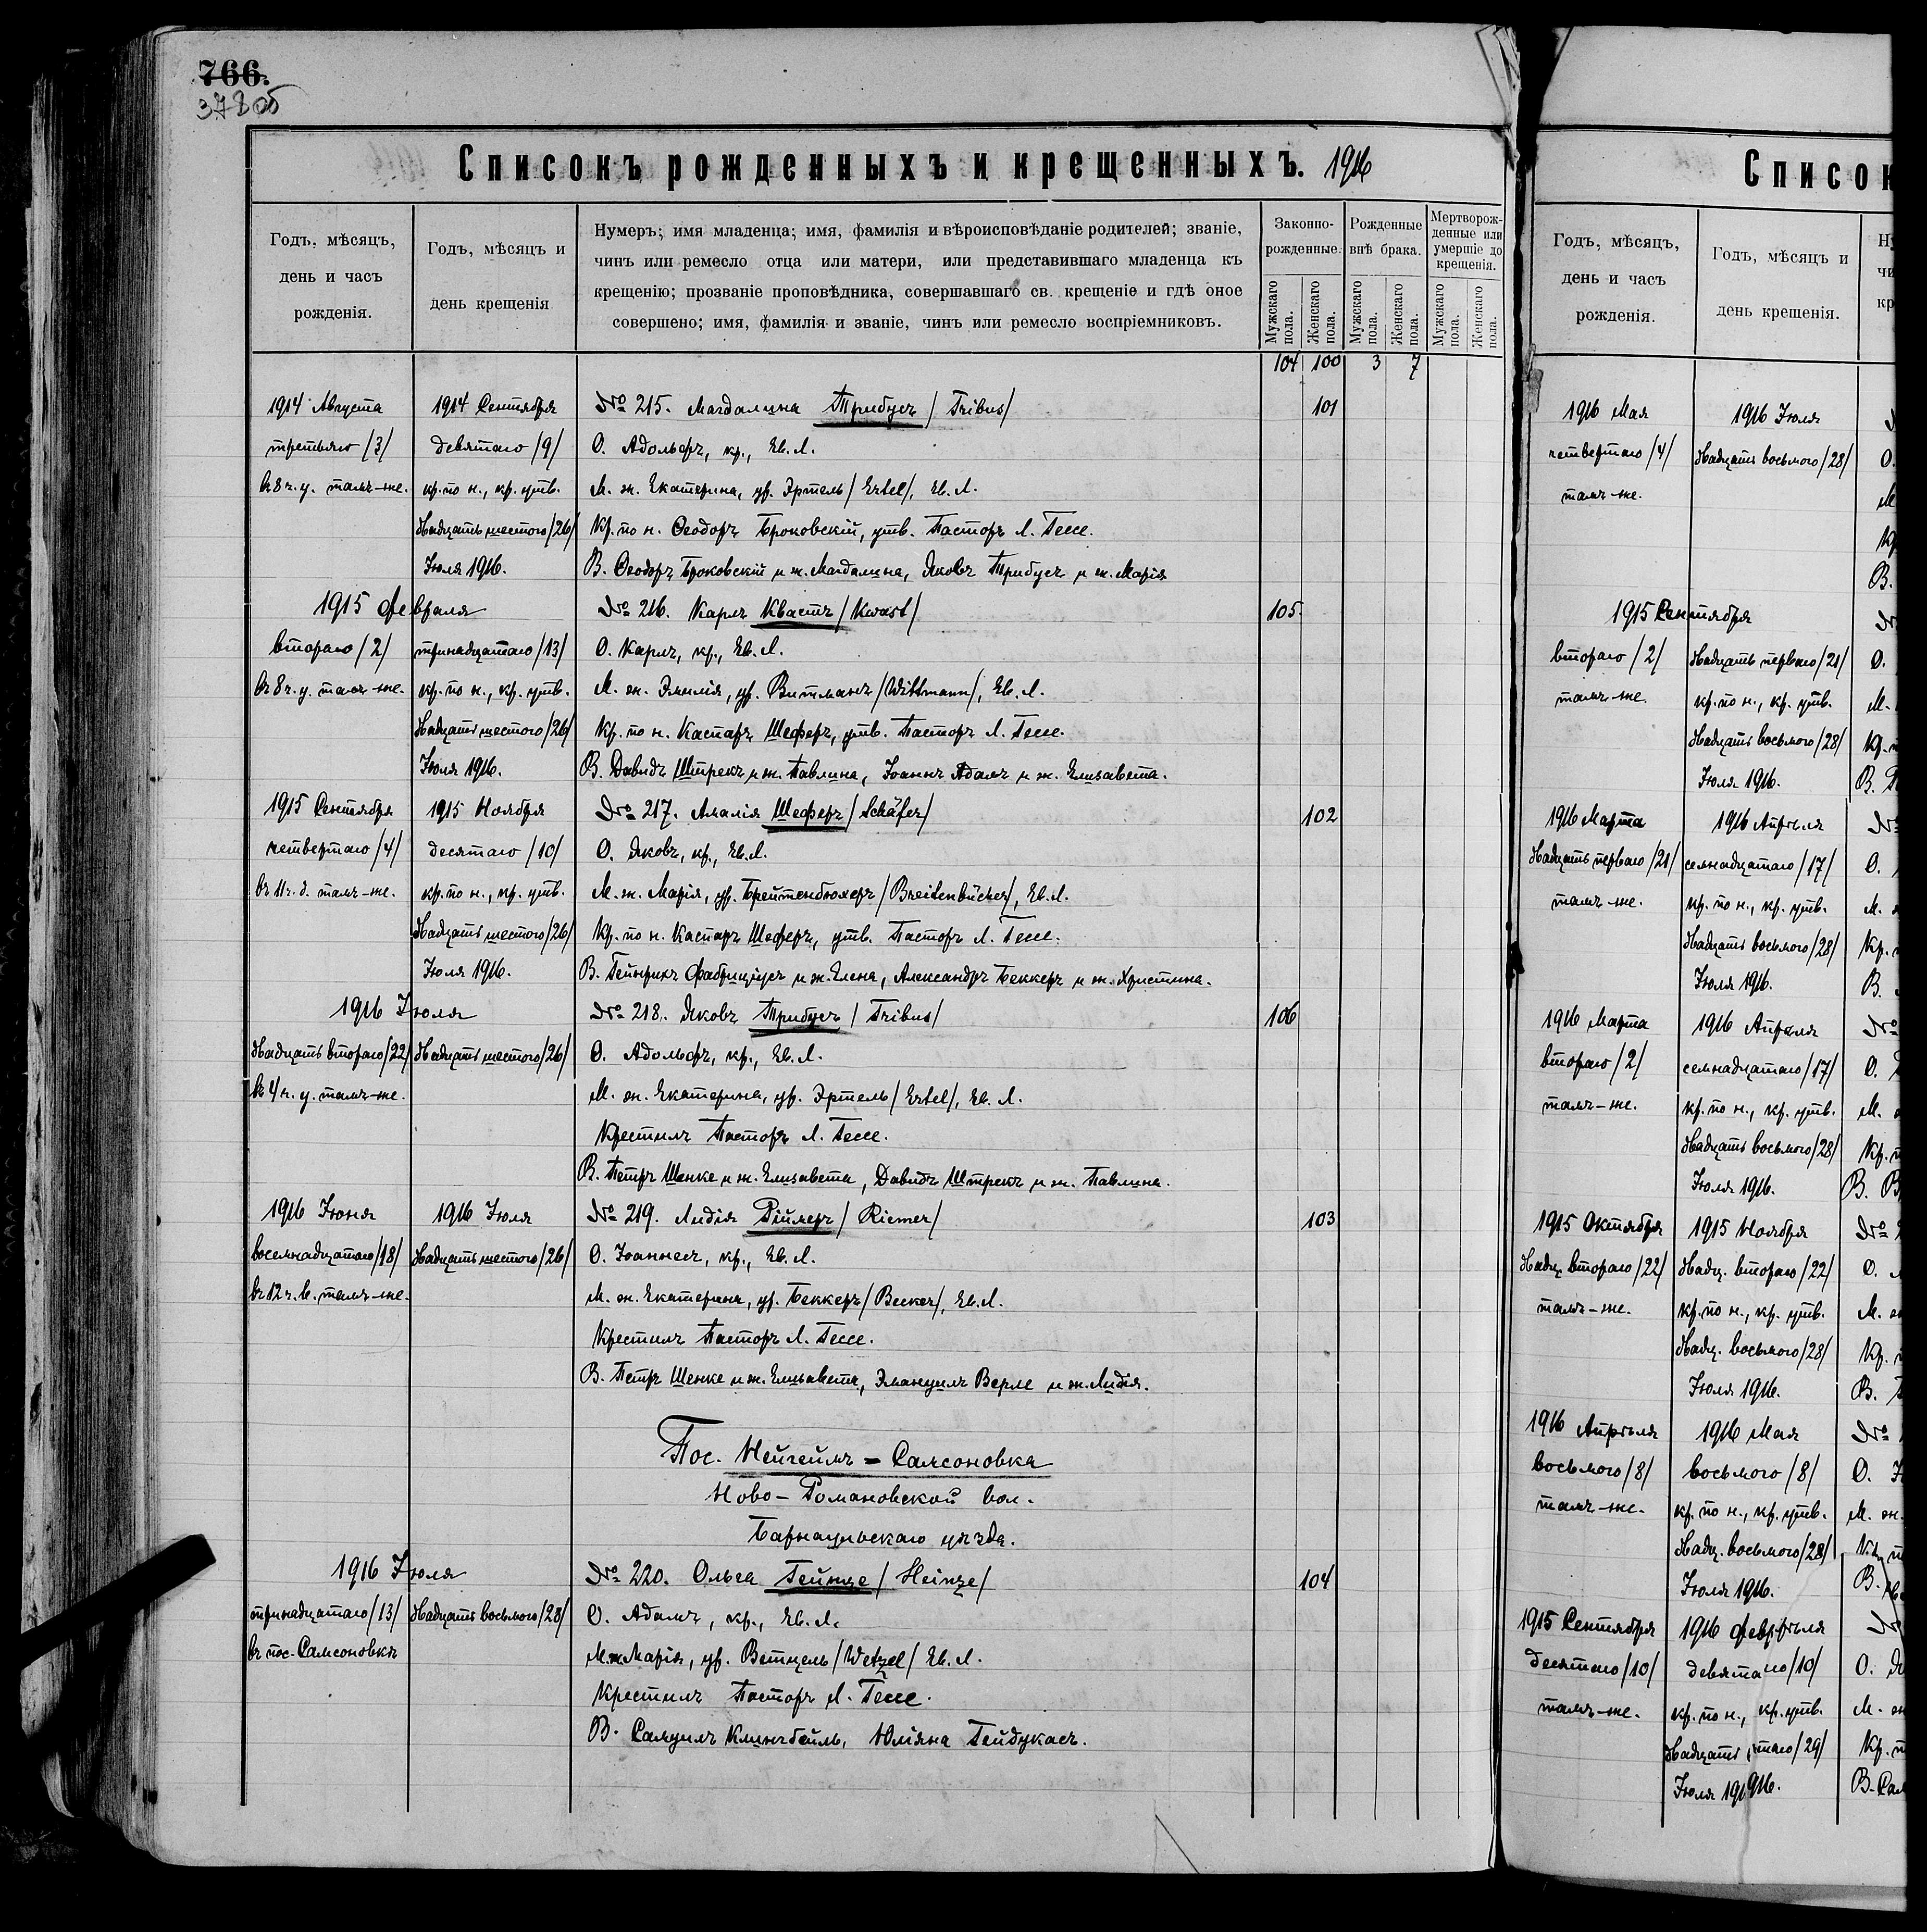 766.
378об
Списокъ рожденныхъ и крещенныхъ. 1916
Годъ, мѣсяцъ, день и часъ рожденія.
Годъ, мѣсяцъ и день крещенія
Нумеръ; имя младенца; имя, фамилія и вѣроисповѣданіе родителей; званіе,
чинъ или ремесло отца или матери, или представившаго младенца къ
крещенію; прозваніе проповѣдника, совершавшаго св. крещеніе и гдѣ оное
совершено; имя, фамилія и званіе, чинъ или ремесло воспріемниковъ.
Законно-рожденные.
Рожденные внѣ брака.
Мертворож-денные или умершіе до крещенія.
Мужскаго пола. Женскаго пола. Мужскаго пола. Женскаго пола. Мужскаго пола. Женскаго пола.
104 100 3 7
1914 Августа 1914 Сентября № 215. Магдалина Трибусъ /Tribus/ 101
третьяго /3/ девятаго /9/ О. Адольфъ, кр., Ев. Л.
въ 8 ч. у. тамъ-же. кр. по н., кр. утв. М. ж. Екатерина, ур. Эртель /Ertel/, Ев. Л.
двадцать шестого /26/ Кр. по н. Ѳеодоръ Броковскій, утв. Пасторъ Л. Гессе.
Іюля 1916. В. Ѳеодоръ Броковскій и ж. Магдалина, Яковъ Трибусъ и ж. Марія
1915 Февраля № 216. Карлъ Квастъ /Kwast/ 105.
второго /2/ тринадцатаго /13/ О. Карлъ, кр., Ев. Л.
въ 8 ч. у. тамъ-же. кр. по н., кр. утв. М. ж. Эмилія, ур. Витманъ /Wittmann/, Ев. Л.
двадцать шестого /26/ Кр. по н. Каспаръ Шеферъ, утв. Пасторъ Л. Гессе.
Іюля 1916. В. Давидъ Штрекъ и ж. Павлина, Іоаннъ Адамъ и ж. Елизавета.
1915 Сентября 1915 Ноября № 217. Амалія Шеферъ /Schäfer/ 102
четвертаго /4/ десятаго /10/ О. Яковъ, кр., Ев. Л.
въ 11 ч. д. тамъ-же. кр. по н., кр. утв. М. ж. Марія, ур. Брейтенбюхеръ /Breitenbücher/, Ев. Л.
двадцать шестого /26/ Кр. по н. Каспаръ Шеферъ, утв. Пасторъ Л. Гессе.
Іюля 1916. В. Гейнрихъ Фабриціусъ и ж. Елена, Александръ Беккеръ и ж. Христина.
1916 Іюля № 218. Яковъ Трибусъ /Tribus/ 106
двадцать второго /22/ двадцать шестого /26/ О. Адольфъ, кр., Ев. Л.
въ 4 ч. у. тамъ-же. М. ж. Екатерина, ур. Эртель /Ertel/, Ев. Л.
Крестилъ Пасторъ Л. Гессе.
В. Петръ Шенке и ж. Елизавета, Давидъ Штрекъ и ж. Павлина.
1916 Іюня 1916 Іюля № 219. Лидія Рімеръ /Riemer/ 103
восемнадцатаго /18/ двадцать шестого /26/ О. Іоаннесъ, кр., Ев. Л.
въ 12 ч. в. тамъ-же. М. ж. Екатерина, ур. Беккеръ /Becker/, Ев. Л.
Крестилъ Пасторъ Л. Гессе.
В. Петръ Шенке и ж. Елизавета, Эмануилъ Верле и ж. Лидія.
Пос. Нейгеймъ = Самсоновка
Ново-Романовской вол.
Барнаульскаго уѣзда.
1916 Іюля № 220. Ольга Гейнце /Heinze/ 104
тринадцатаго /13/ двадцать восьмого /28/ О. Адамъ, кр., Ев. Л.
въ пос. Самсоновкѣ М. ж. Марія, ур. Ветцель /Wetzel/ Ев. Л.
Крестилъ Пасторъ Л. Гессе.
В. Самуилъ Клингбейль, Юліяна Гейдукасъ.
Список
Годъ, мѣсяцъ, день и часъ рожденія.
Годъ, мѣсяцъ и день крещенія.
1916 Мая 1916 Іюля
четвертаго /4/ двадцать восьмого /28/ О.
тамъ-же. М
Кр
В.
1915 Сентября №
второго /2/ двадцать перваго /21/ О.
тамъ-же. кр. по н., кр. утв. М.
двадцать восьмого /28/ Кр.
Іюля 1916. В.
1916 Марта 1916 Апрѣля №
двадцать перваго /21/ семнадцатаго /17/ О.
тамъ-же. кр. по н., кр. утв. М.
двадцать восьмого /28/ Кр.
Іюля 1916. В.
1916 Марта 1916 Апрѣля №
второго /2/ семнадцатаго /17/ О.
тамъ-же. кр. по н., кр. утв. М.
двадцать восьмого /28/ Кр.
Іюля 1916. В.
1915 Октября 1915 Ноября №
двадц. второго /22/ двадц. второго /22/ О.
тамъ-же. кр. по н., кр. утв. М.
двадц. восьмого /28/ Кр.
Іюля 1916. В.
1916 Апрѣля 1916 Мая №
восьмого /8/ восьмого /8/ О.
тамъ-же. кр. по н., кр. утв. М. ж.
двадц. восьмого /28/
Іюля 1916. В.
1915 Сентября 1916 Февраля
десятаго /10/ О.
тамъ-же. кр. по н., кр. утв. М.
двадцать /29/ Кр.
Іюля В.